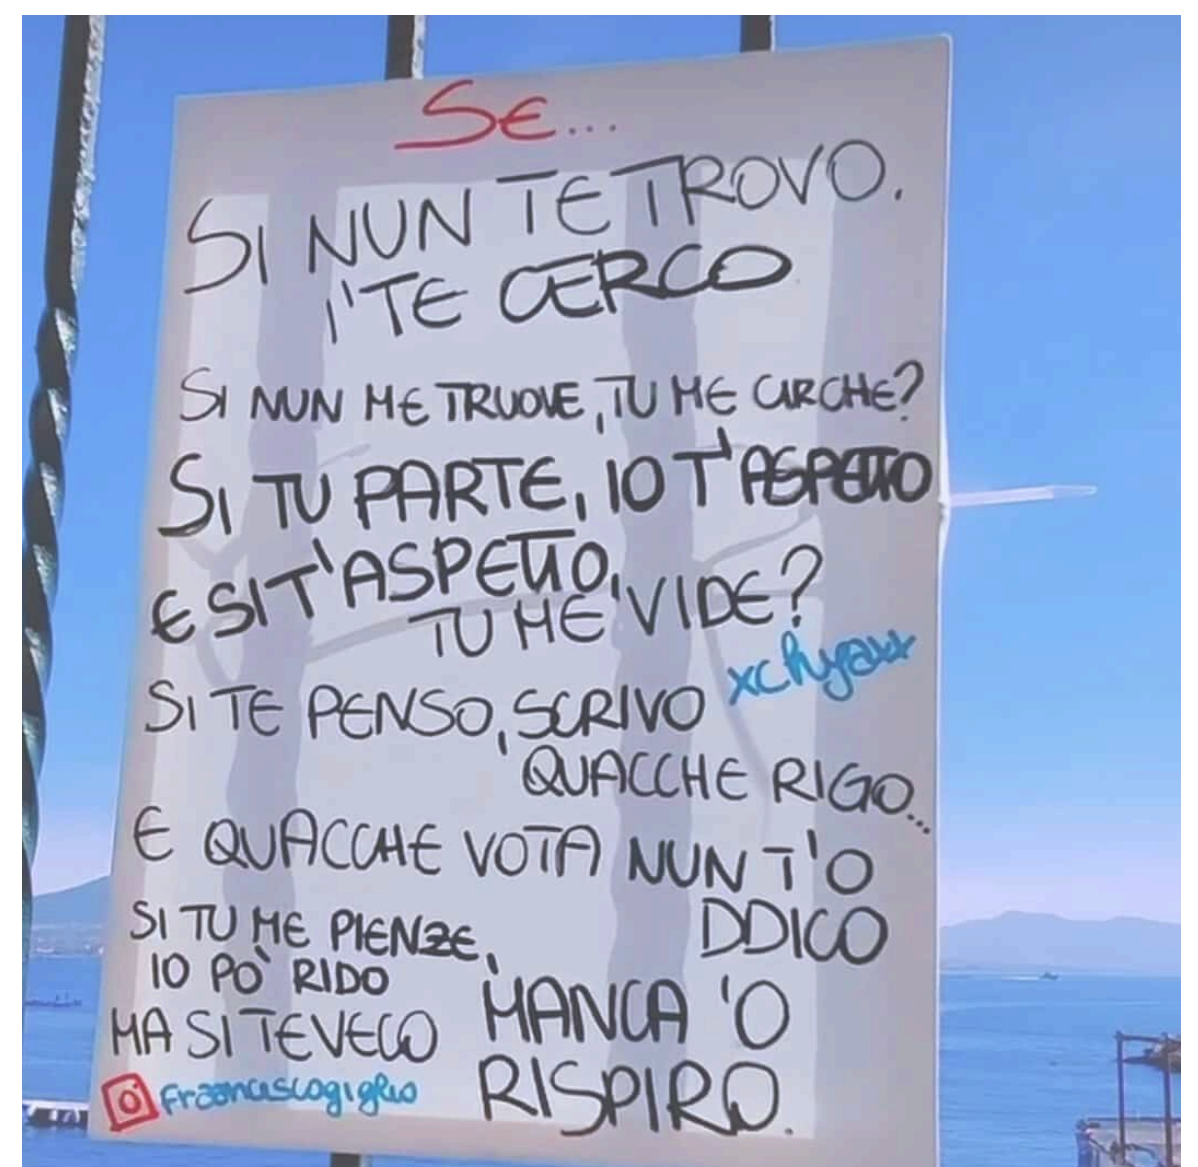 SE...
SI NUN TE TROVO.
I' TE CERCO
SI NUN ME TRUOVE, TU ME CIRCHE?
SI TU PARTE, IO T'ASPETTO
E SI T'ASPETTO,
TU ME VIDE?
SI TE PENSO, SCRIVO
QUACCHE RIGO...
E QUACCHE VOTA NUN T'O
DDICO
SI TU ME PIENZE,
IO PO' RIDO
MA SI TE VECO
MANCA 'O
RISPIRO.